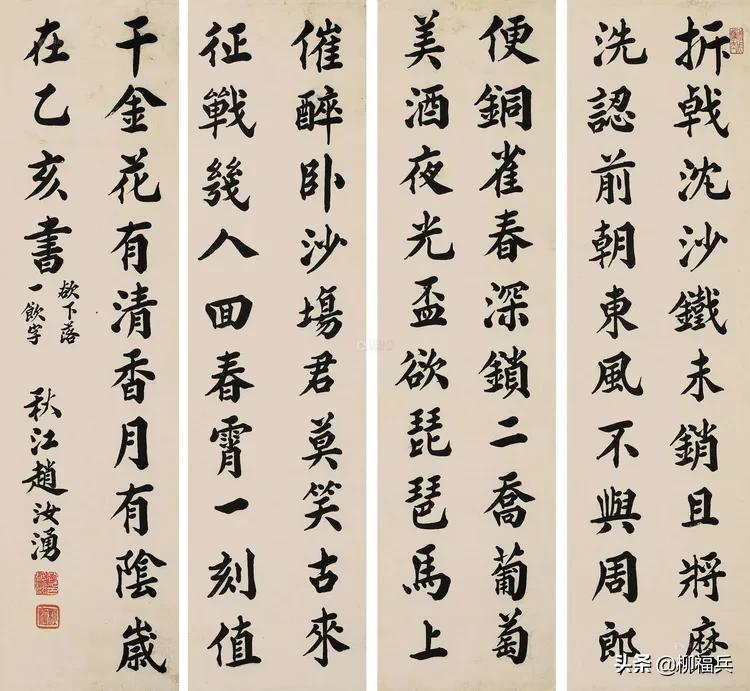 拆戟沈沙鐵未銷且將磨
洗認前朝東風不與周郎
便銅雀春深鎖二喬葡萄
美酒夜光盃欲琵琶馬上
催醉卧沙塲君莫笑古來
征戰幾人回春霄一刻值
千金花有清香月有陰歲
在乙亥書
欲下落
一飲字
秋江趙汝湧
头条 @柳福兵